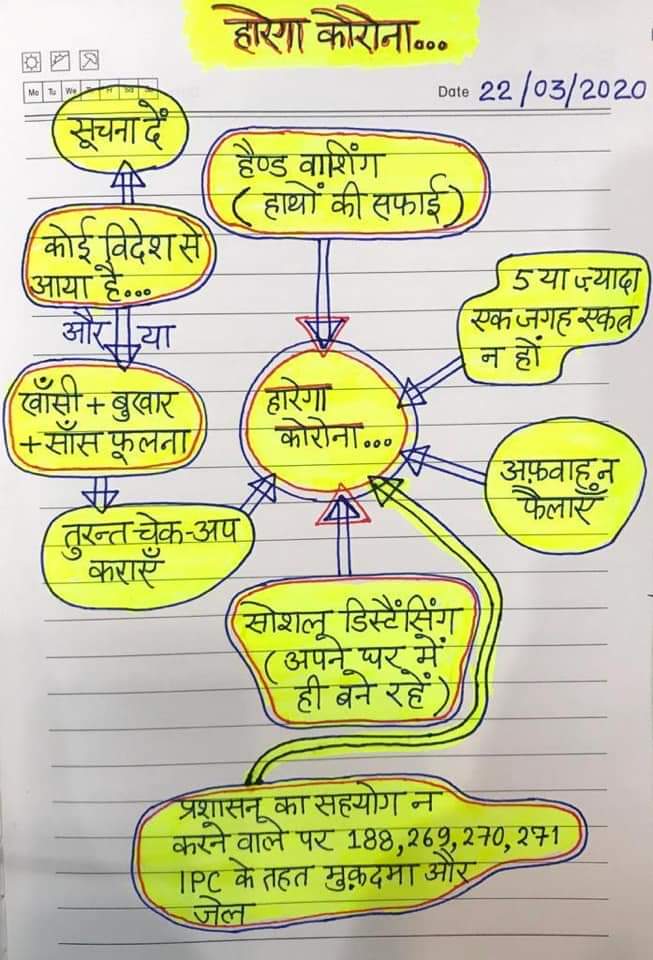 हारेगा कोरोना...
Mo Tu We Th Fr Sa Su
Date 22/03/2020
सूचना दें
हैण्ड वाशिंग
(हाथों की सफाई)
कोई विदेश से
आया है...
और या
5 या ज़्यादा
एक जगह एकत्र
न हों
खाँसी + बुखार
+ साँस फूलना
हारेगा
कोरोना...
अफ़वाह न
फैलाएँ
तुरन्त चेक-अप
कराएँ
सोशल डिस्टैंसिंग
(अपने घर में
ही बने रहें)
प्रशासन का सहयोग न
करने वाले पर 188,269,270,271
IPC के तहत मुक़दमा और
जेल